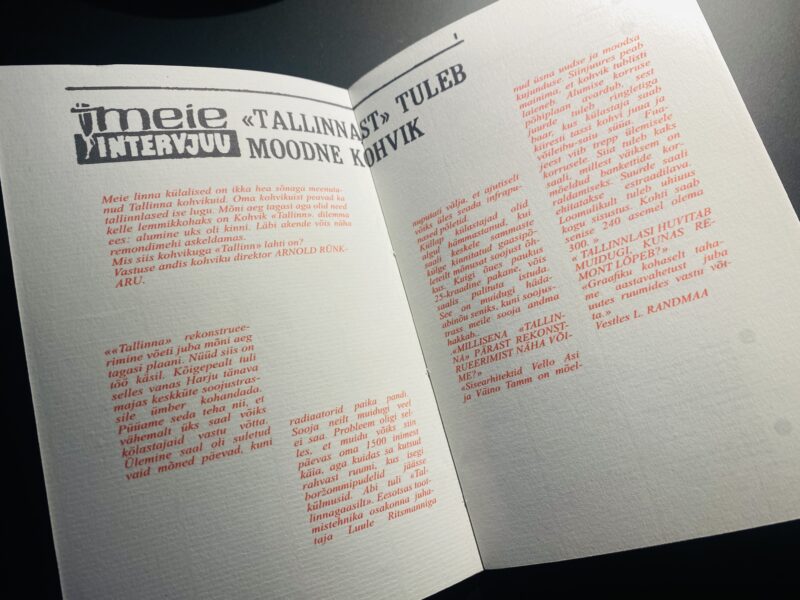 meie
INTERVJUU
«TALLINNAST» TULEB
MOODNE KOHVIK
Meie linna külalised on ikka hea sõnaga meenuta-
nud Tallinna kohvikuid. Oma kohvikuist peavad ka
tallinnlased ise lugu. Mõni aeg tagasi aga olid need
kelle lemmikkohaks on Kohvik «Tallinn». dilemma
ees: alumine uks oli kinni. Läbi akende võis näha
remondimehi askeldamas.
Mis siis kohvikuga «Tallinn» lahti on?
Vastuse andis kohviku direktor ARNOLD RÜNK-
ARU.
««Tallinna» rekonstruee-
rimine võeti juba mõni aeg
tagasi plaani. Nüüd siis on
töö käsil. Kõigepealt tuli
selles vanas Harju tänava
majas keskküte soojustras-
sile ümber kohandada.
Püüame seda teha nii, et
vähemalt üks saal võiks
külastajaid vastu võtta.
Ülemine saal oli suletud
vaid mõned päevad, kuni
radiaatorid paika pandi.
Sooja neilt muidugi veel
ei saa. Probleem oligi sel-
les, et muidu võiks siin
päevas oma 1500 inimest
käia, aga kuidas sa kutsud
rahvasi ruumi, kus isegi
boržommipudelid jäässe
külmusid. Abi tuli «Tal-
linnagaasilt». Eesotsas toot-
mistehnika osakonna juha-
taja Luule Ritsmanniga
nuputati välja, et ajutiselt
võiks üles seada infrapu-
nased põletid.
Küllap külastajad olid
algul hämmastunud, kui
saali keskele sammaste
külge kinnitatud gaasipõ-
leteilt mõnusat soojust õh-
kus. Kuigi õues paukus
25-kraadine pakane, võis
saalis palituta istuda.
See on muidugi häda-
abinõu seniks, kuni soojus-
trass meile sooja andma
hakkab.
«MILLISENA «TALLIN-
NA» PÄRAST REKONST-
RUEERIMIST NÄHA VÕI-
ME?»
«Sisearhitektid Vello Asi
ja Väino Tamm on mõel-
nud üsna uudse ja moodsa
kujunduse. Siinjuures peab
mainima, et kohvik tublisti
laieneb. Alumise korruse
põhiplaan avardub, sest
juurde tuleb ringletiga
baar, kus külastaja saab
kiiresti tassi kohvi juua ja
võileibu-saia süüa. Fua-
jeest viib trepp ülemisele
korrusele. Siia tuleb kaks
saali, milest väiksem on
mõeldud bankettide kor-
raldamiseks. Suurde saali
ehitatakse estraadilava.
Loomulikult tuleb uhiuus
kogu sisustus. Kohti saab
senise 240 asemel olema
300. »
«TALLINLASI HUVITAB
MUIDUGI, KUNAS RE-
MONT LÕPEB?»
«Graafiku kohaselt taha-
me aastavahetust juba
uutes ruumides vastu võt-
ta.»
Vestles L. RANDMAA